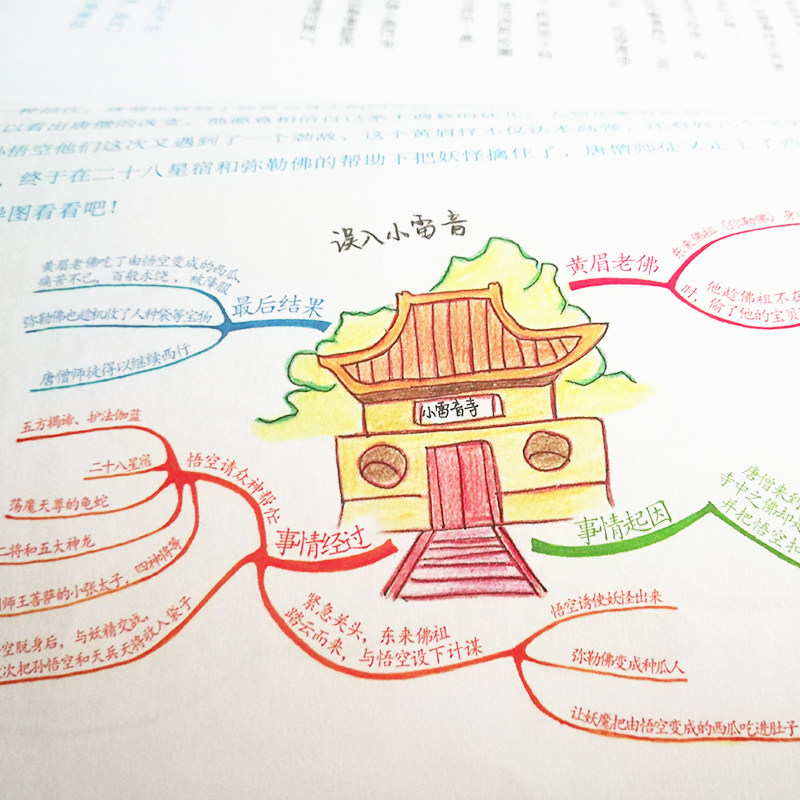 以看出唐僧的改变，他愿意相信自己亲手调教的徒儿，
孙悟空他们这次又遇到了一个劲敌，这个黄眉怪不仅法术高强，还有好
，终于在二十八星宿和弥勒佛的帮助下把妖怪擒住了，唐僧师徒又走上了西
图看看吧！
误入小雷音
小雷音寺
黄眉老佛
东来佛祖（弥勒佛）身
他趁佛祖不在
时，偷了他的宝贝
最后结果
黄眉老佛吃了由悟空变成的西瓜，
痛苦不已，百般求饶，被降服
弥勒佛也趁机收了人种袋等宝物
唐僧师徒得以继续西行
事情经过
悟空请众神帮忙
五方揭谛、护法伽蓝
二十八星宿
荡魔天尊的龟蛇
二将和五大神龙
国师王菩萨的小张太子，四神将等
空脱身后，与妖精交战，
次把孙悟空和天兵天将收入袋子
紧急关头，东来佛祖
踏云而来，与悟空设下计谋
悟空诱使妖怪出来
弥勒佛变成种瓜人
让妖魔把由悟空变成的西瓜吃进肚子
事情起因
唐僧来到
寺中之佛
并把悟空